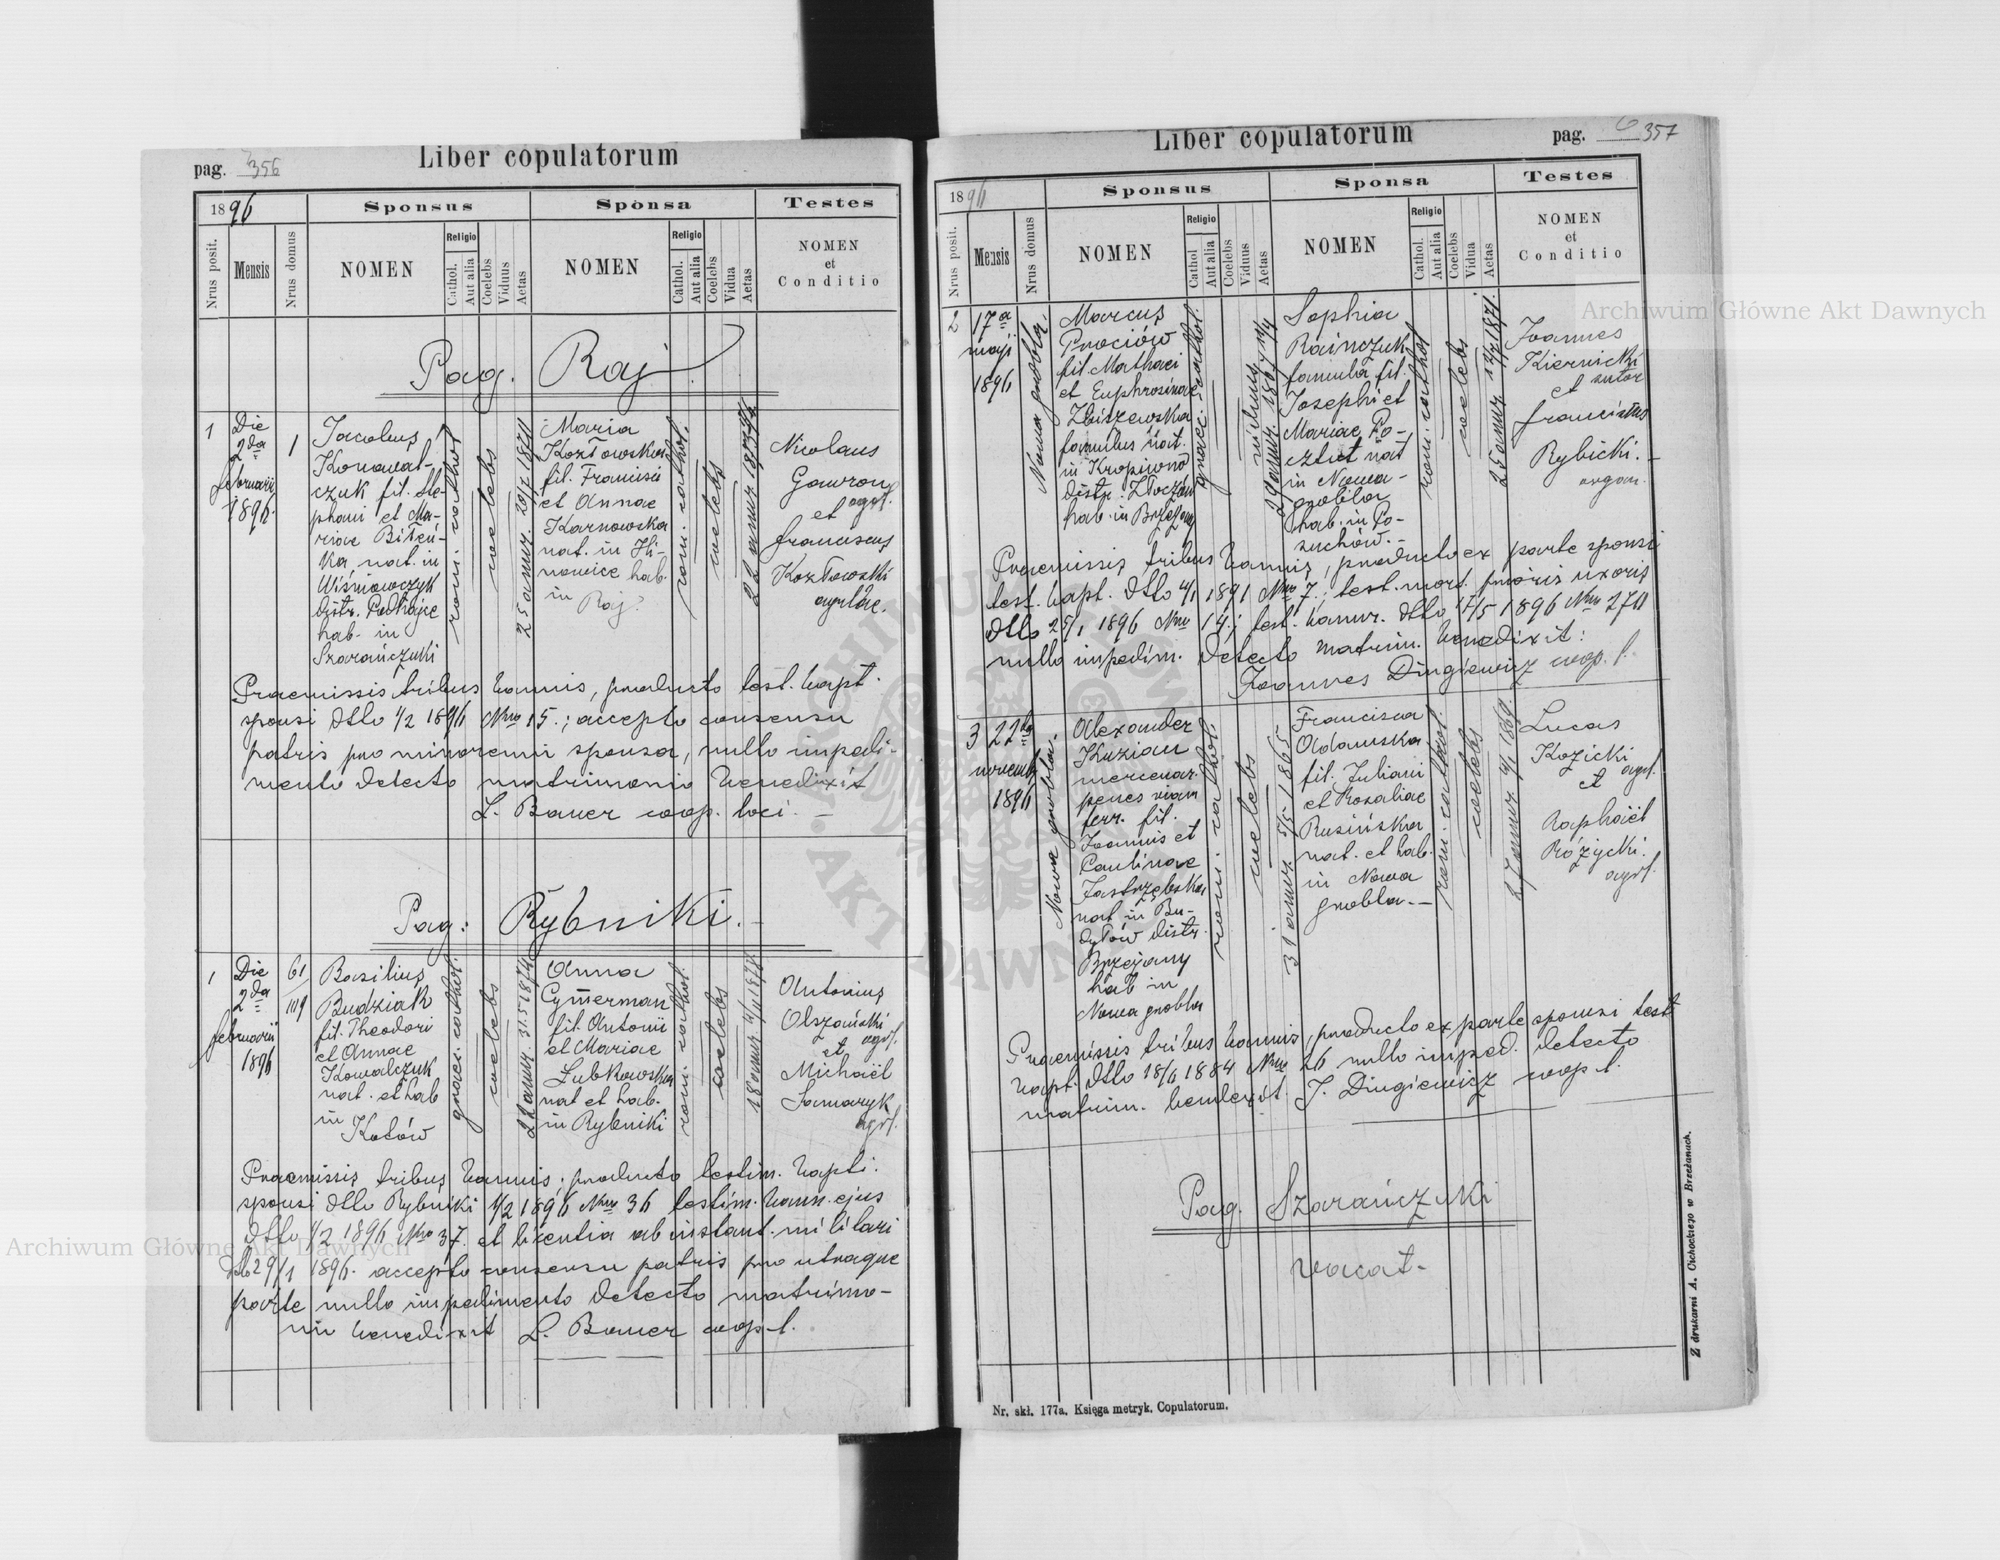 Liber copulatorum
pag. 356
1896
Sponsus
Sponsa
Testes
Nrus posit.
Mensis
Nrus domus
NOMEN
Religio
Cathol.
Aut alia
Coelebs
Viduus
Aetas
NOMEN
Religio
Cathol.
Aut alia
Coelebs
Vidua
Aetas
NOMEN
et
Conditio
Pag. Raj
1
Die
2da
februarii
1896.
1
Jacobus
Konowal-
czuk fil. Ste-
phani et Ma-
riae Biłeń-
ka, nat. in
Wiśniowczyk
distr. Podhajce
hab. in
Szarańczuki
rom. cathol
coelebs
25 annor. 20/7 1870
Maria
Kozłowska
fil. Francisci
et Annae
Karnowska
nat. in Hi-
nowice hab.
in Raj.
rom. cathol.
coelebs
22 annor
Nicolaus
Gawron
agr.
et
franciscus
Kozłowski
agricolae.
Praemissis tribus bannis, producto test. bapt.
sponsi dtto 1/2 1896 Nro 15.; accepto consensu
patris pro minorenni sponsa, nullo impedi-
mento detecto matrimonio benedixit
L. Bauer coop. loci. —
Pag: Rybniki. —
1
Die
2da
februarii
1896
61/
109
Basilius
Budziak
fil. Theodori
et Annae
Kowalczuk
nat. et hab
in
Kotów
graeci cathol.
coelebs
22 annor 31.5 1874
Anna
Cymerman
fil. Antonii
et Mariae
Łubkowska
nat et hab.
in Rybniki
rom. cathol.
coelebs
18 annor
Antonius
Olszański
agr.
et
Michaël
Samaryk
agr.
Praemissis tribus bannis; producto testim. bapti.
sponsi dtto Rybniki 1/2 1896 Nro 36 testim. bann. ejus
dtto 1/2 1896 Nro 37. et licentia ab instant. militari
dtto 29/1 1896. accepto consensu patris pro utraque
parte nullo impedimento detecto matrimo-
nio benedixit L. Bauer coop. l.
Liber copulatorum
pag. 357
1896
Sponsus
Sponsa
Testes
Nrus posit.
Mensis
Nrus domus
NOMEN
Religio
Cathol
Aut alia
Coelebs
Viduus
Aetas
NOMEN
Religio
Cathol.
Aut alia
Coelebs
Vidua
Aetas
NOMEN
et
Conditio
2
17a
maji
1896
Nowa grobla.
Marcus
Prociów
fil. Mathaei
et Euphrosinae
Zbitzewska
famulus nat.
in Kropiwna
distr. Złoczów
hab. in Brzeżany
graeci cathol.
viduus
29 annor. 1867
Sophia
Rainczuk
famula fil.
Josephi et
Mariae Po-
nat
in Nowa-
grobla
hab. in Po-
suchów. —
rom. cathol
coelebs
25 annor 1871.
Joannes
Kiernicki
et sutor
franciscus
Rybicki. —
organ.
Praemissis tribus bannis, producto ex parte sponsi
test. bapt. dtto 4/1 1891 Nro 7.; test. mort. prioris uxoris
dtto 25/1 1896 Nro 14.; test. bannor. dtto 17/5 1896 Nro 270
nullo impedim. detecto matrim. benedixit:
Joannes Dingiewicz coop. l.
3
22da
novemb
1896
Nowa grobla.
Alexander
Kuzian
mercenar.
penes viam
ferr. fil.
Joannis et
Paulinae
Jastrzębska
nat in Bu-
dyłów distr.
Brzeżany
hab in
Nowa grobla
rom. cathol.
coelebs
31 annor. 5/5 1865
Francisca
Adamska
fil. Juliani
et Rozaliae
Rusińska
nat. et hab.
in Nowa
grobla. —
rom. cathol.
coelebs
27 annor 1869.
Lucas
Kozicki
agr.
et
Raphaël
Różycki.
agr.
Praemissis tribus bannis, producto ex parte sponsi test
bapt. dtto 18/6 1884 Nro 26 nullo imped. detecto
matrim. benedixit. J. Dingiewicz coop. l.
Pag. Szarańczuki
vacat. —
Nr. skł. 177a. Księga metryk. Copulatorum.
Z drukarni A. Cichockiego w Brzeżanach.
Archiwum Główne Akt Dawnych
Archiwum Główne Akt Dawnych
ARCHIWUM GŁÓWNE AKT DAWNYCH